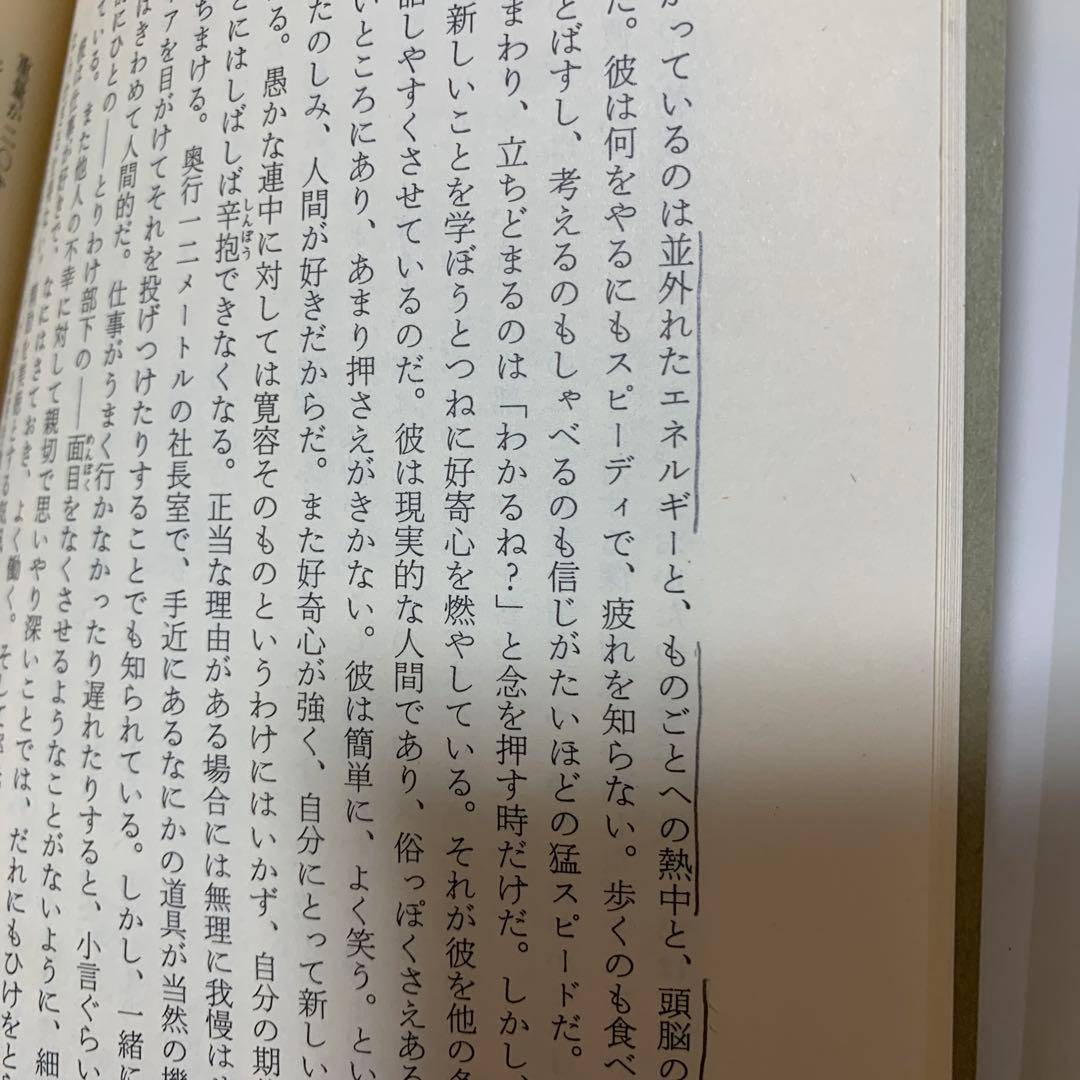 かっているのは並外れたエネルギーと、ものごとへの熱中と、頭脳の
た。彼は何をやるにもスピーディで、疲れを知らない。歩くのも食べ
とばすし、考えるのもしゃべるのも信じがたいほどの猛スピードだ。
まわり、立ちどまるのは「わかるね?」と念を押す時だけだ。しかし、
新しいことを学ぼうとつねに好奇心を燃やしている。それが彼を他の
話しやすくさせているのだ。彼は現実的な人間であり、俗っぽくさえある
いところにあり、あまり押さえがきかない。彼は簡単に、よく笑う。とい
たのしみ、人間が好きだからだ。また好奇心が強く、自分にとって新しい
る。愚かな連中に対しては寛容そのものというわけにはいかず、自分の期
とにはしばしば辛抱できなくなる。正当な理由がある場合には無理に我慢は
ちまける。奥行一二メートルの社長室で、手近にあるなにかの道具が当然の機
アを目がけてそれを投げつけたりすることでも知られている。しかし、一緒に
はきわめて人間的だ。仕事がうまく行かなかったり遅れたりすると、小言ぐらい
にひとの――とりわけ部下の――面目をなくさせるようなことがないように、細
ている。また他人の不幸に対して親切で思いやり深いことでは、だれにもひけをと
彼は仕事が好きで、なにはさておき、よく働く。そして